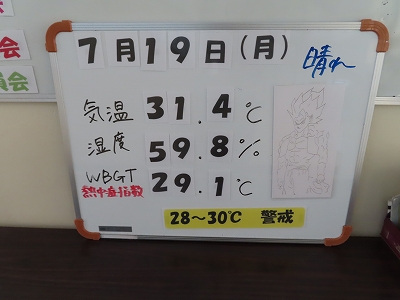 7月19日(月) 晴れ
気温 31.4℃
湿度 59.8%
WBGT 29.1℃
熱中症指数
28～30℃ 警戒
会
員会